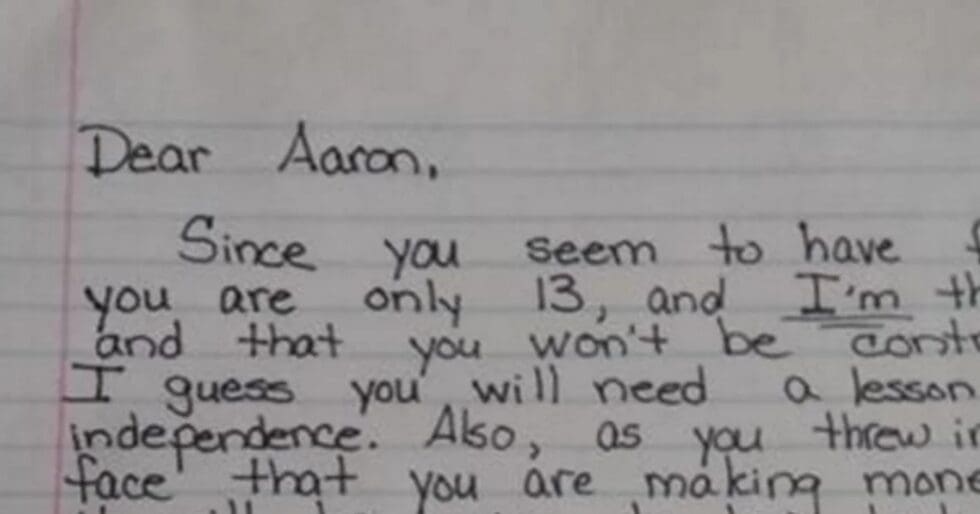 Dear Aaron,
Since you seem to have
you are only 13, and I'm
and that you won't be
I guess you will need a lesson
independence. Also, as you threw
face that you are making